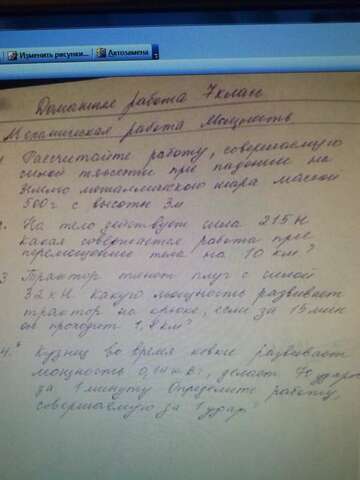 Изменить рисунки...
Автозамена
Домашнее работа 7 класс
Механическая работа Мощность
Рассчитайте работу, совершаемую
силой тяжести при падении на
землю металлического шара массой
500 г с высоты 3м
2. На тело действует сила 215 Н
Какая совершается работа при
перемещение тела на 10 км?
3 Трактор тянет плуг с силой
32 кН Какую мощность развивает
трактор на крюке, если за 15 мин
он проходит 1,8 км?
4.* Кузнец во время ковки развивает
мощность 0,14 кВт, делает 70 ударов
за 1 минуту Определите работу,
совершаемую за 1 удар